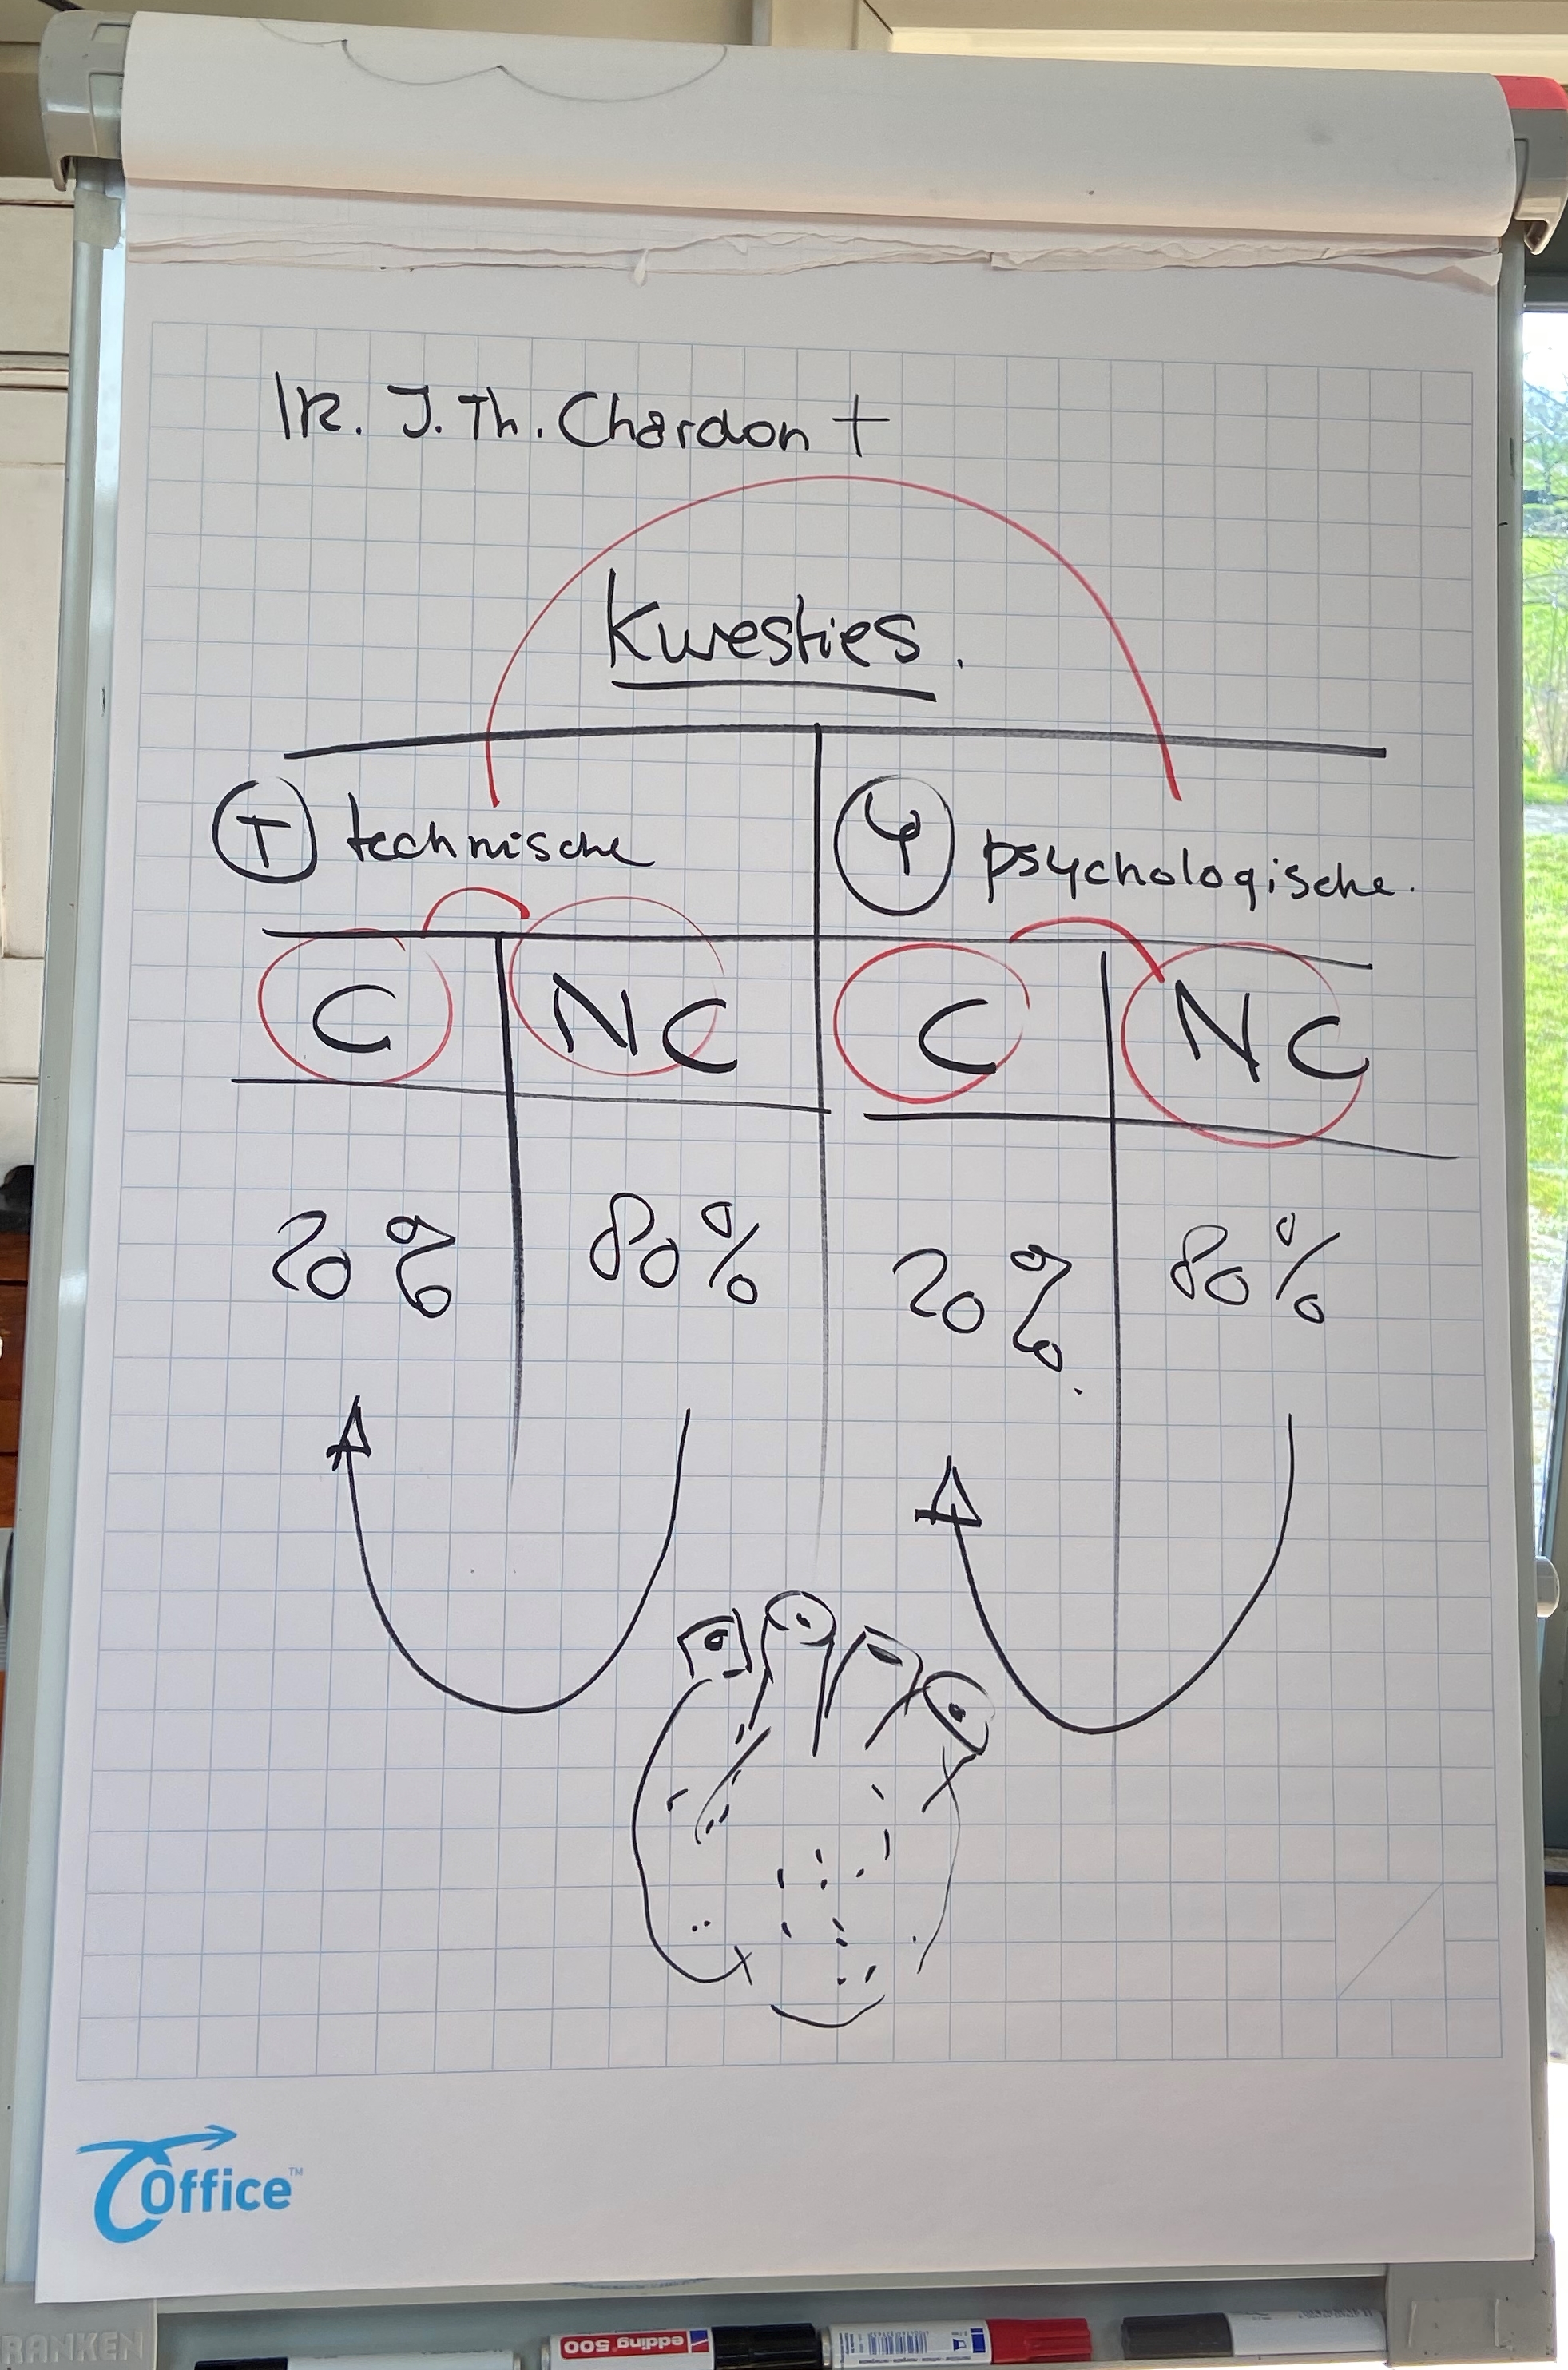 IR. J. Th. Chardon +
kwesties.
T technische
Ψ psychologische.
C NC C NC
20% 80% 20%. 80%
Office™
RANKEN
edding 500